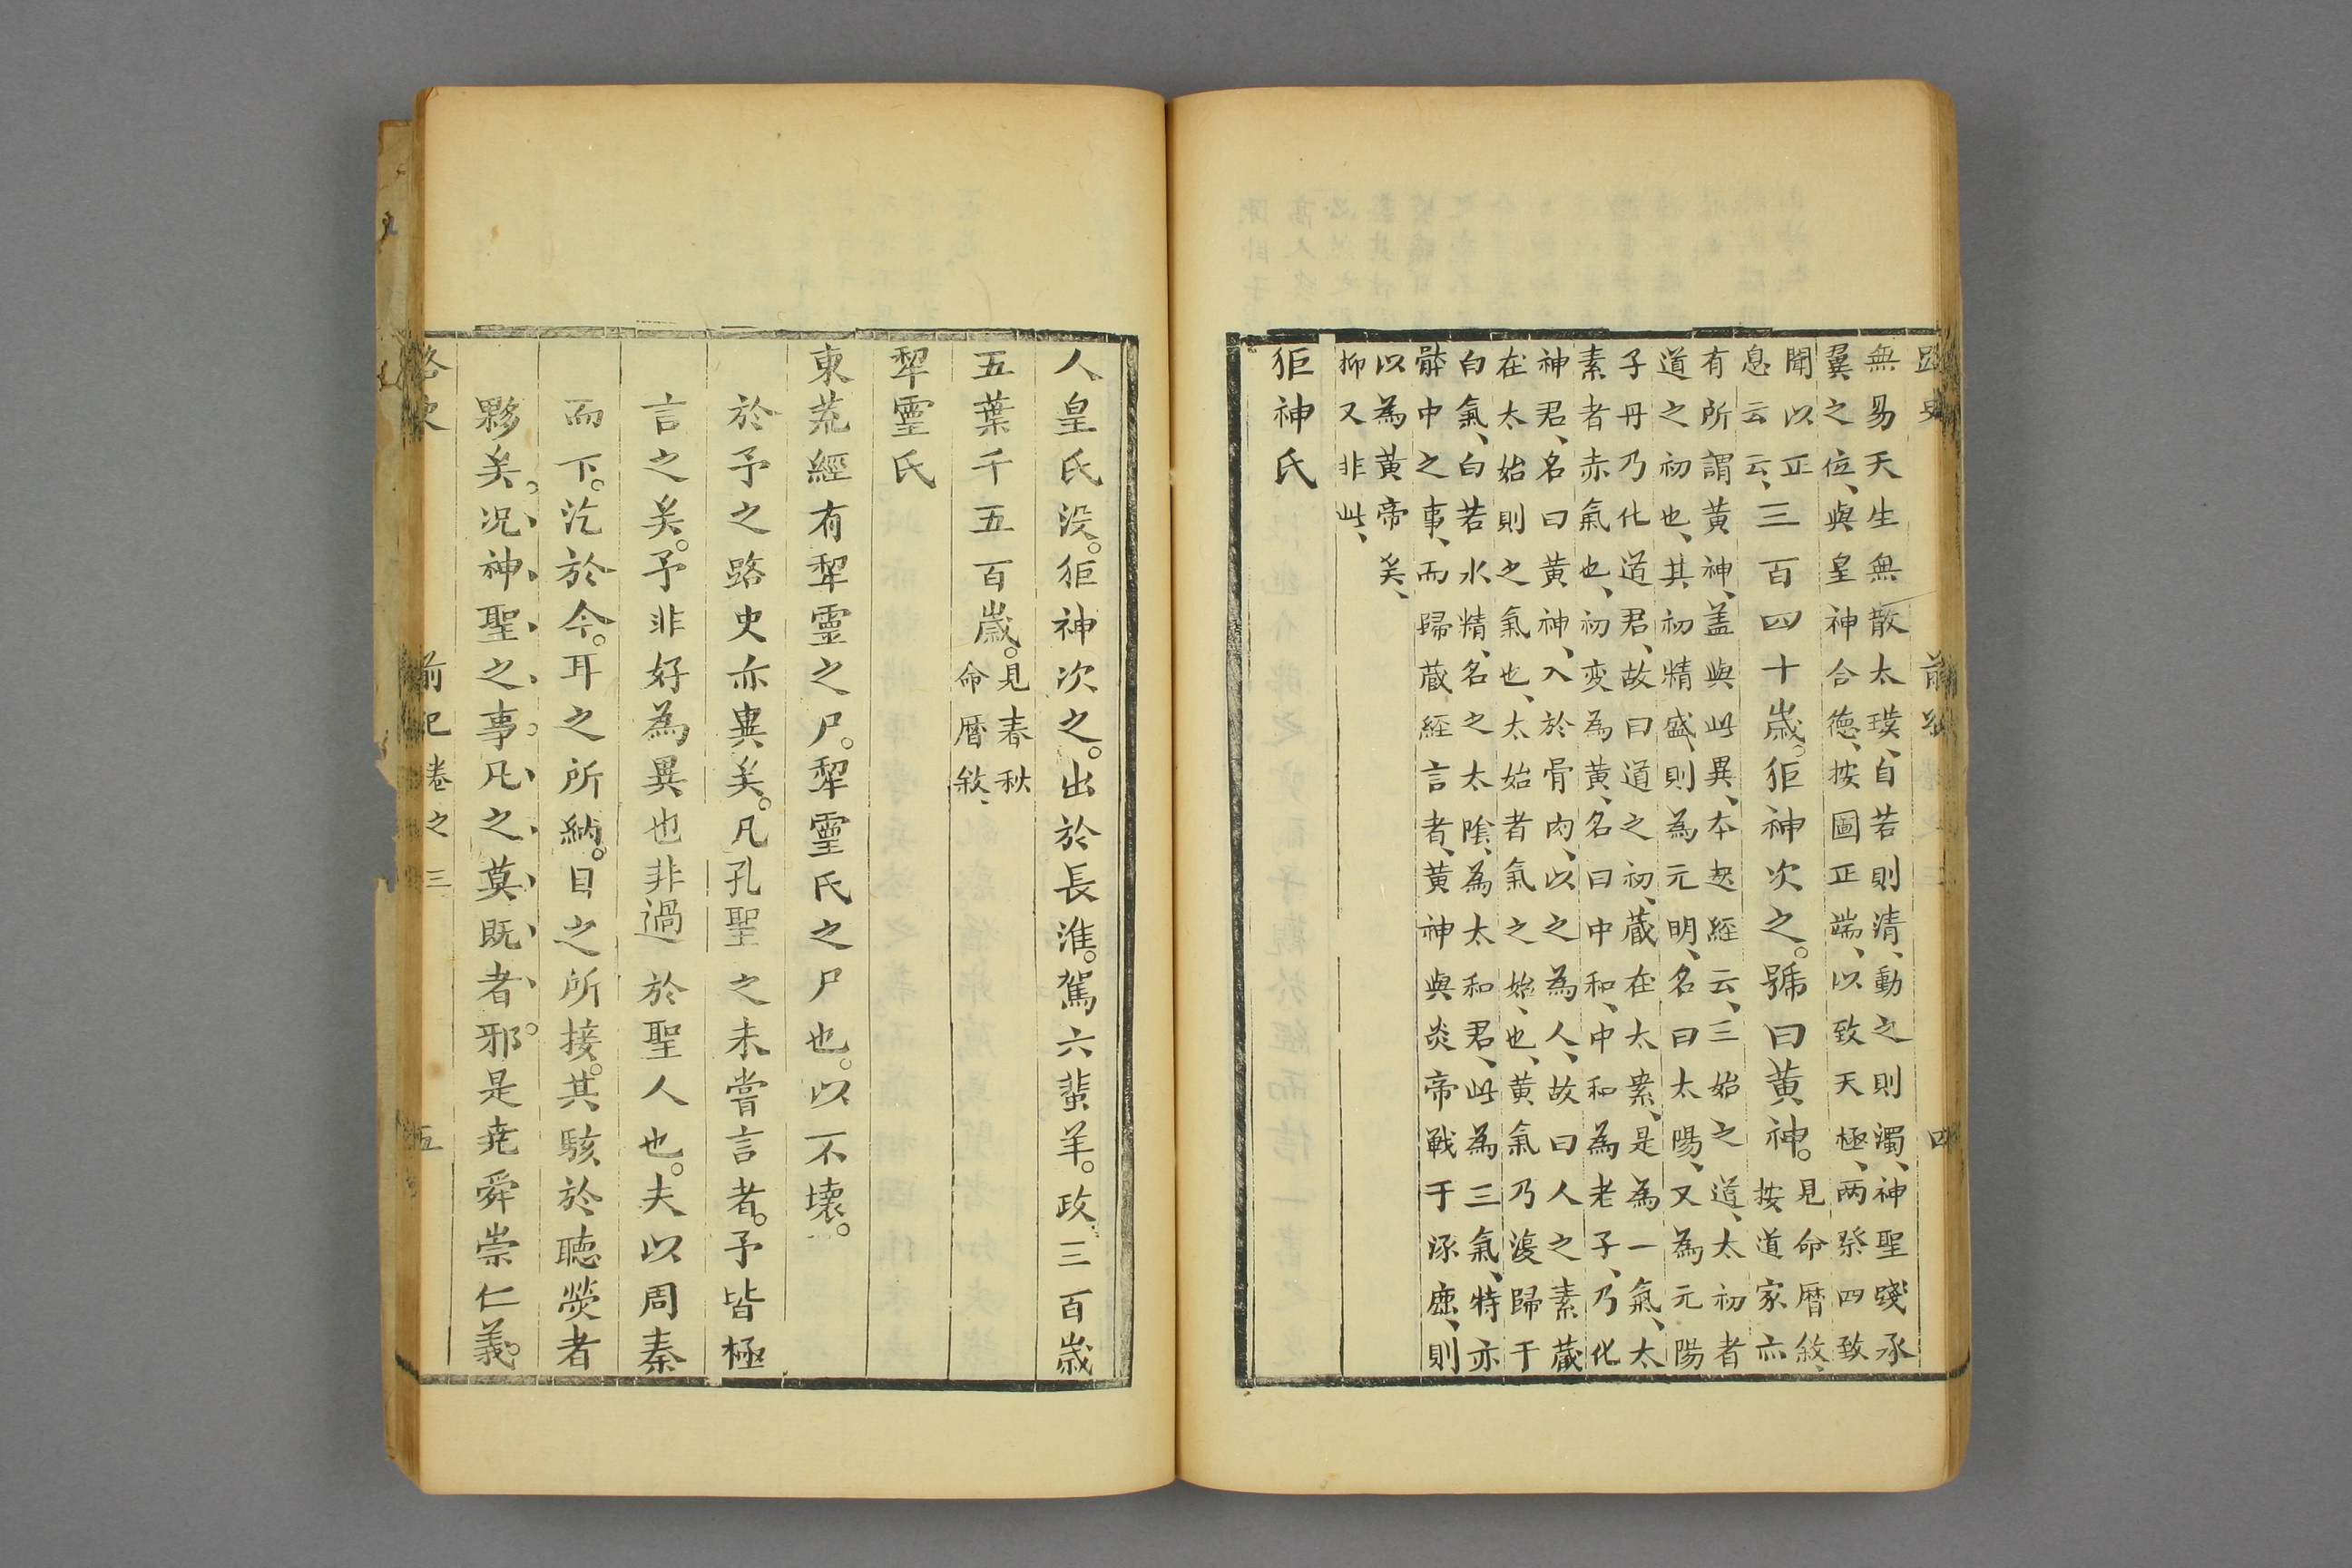 路史 前紀 四
無易天生無散太璞、自若則清、動之則濁、神聖踐承
翼之位、與皇神合德、按圖正端、以致天極、两癸四致
聞以正
息云云、三百四十歲。狉神次之。號曰黄神。見命暦敘、
按道家亦
有所謂黄神、盖與此異、本起經云、三始之道、太初者
道之初也、其初精盛、則為元明、名曰太陽、又為元陽
子丹乃化道君、故曰道之初、蔵在太素、是為一氣、太
素者赤氣也、初変為黄、名曰中和、中和為老子、乃化
神君、名曰黄神、入於骨肉、以之為人、故曰人之素蔵
在太始則之氣也、太始者氣之始、也、黄氣乃復歸于
白氣、白若水精、名之太陰、為太和君、此為三氣、特亦
骵中之事、而歸蔵、経言者、黄神與炎帝戦于涿鹿、則
以為黄帝矣、
抑又非此、
狉神氏
人皇氏没。狉神次之。出於長淮。駕六蜚羊。政三百歳
五葉千五百歳。見春秋
命暦敘、
犂靈氏
東荒經有犂靈之尸。犂靈氏之尸也。以不壊。
於予之路史亦異矣。凡孔聖之未嘗言者。予皆極
言之矣。予非好為異也非過於聖人也。夫以周秦
而下。汔於今。耳之所納。目之所接。其駭於聴熒者
夥矣。况神聖之事。凡之莫既者邪。是尭舜崇仁義。
路史 前紀卷之三 五